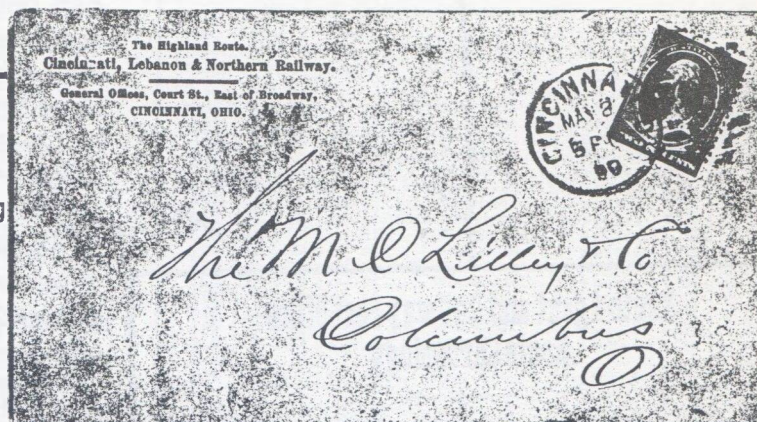 The Highland Route.
Cincinnati, Lebanon & Northern Railway.
General Offices, Court St., East of Broadway,
CINCINNATI, OHIO.
CINCINNA
MAY 2
5 P
TWO CENTS
g
The M C Lilley & Co
Columbus
O